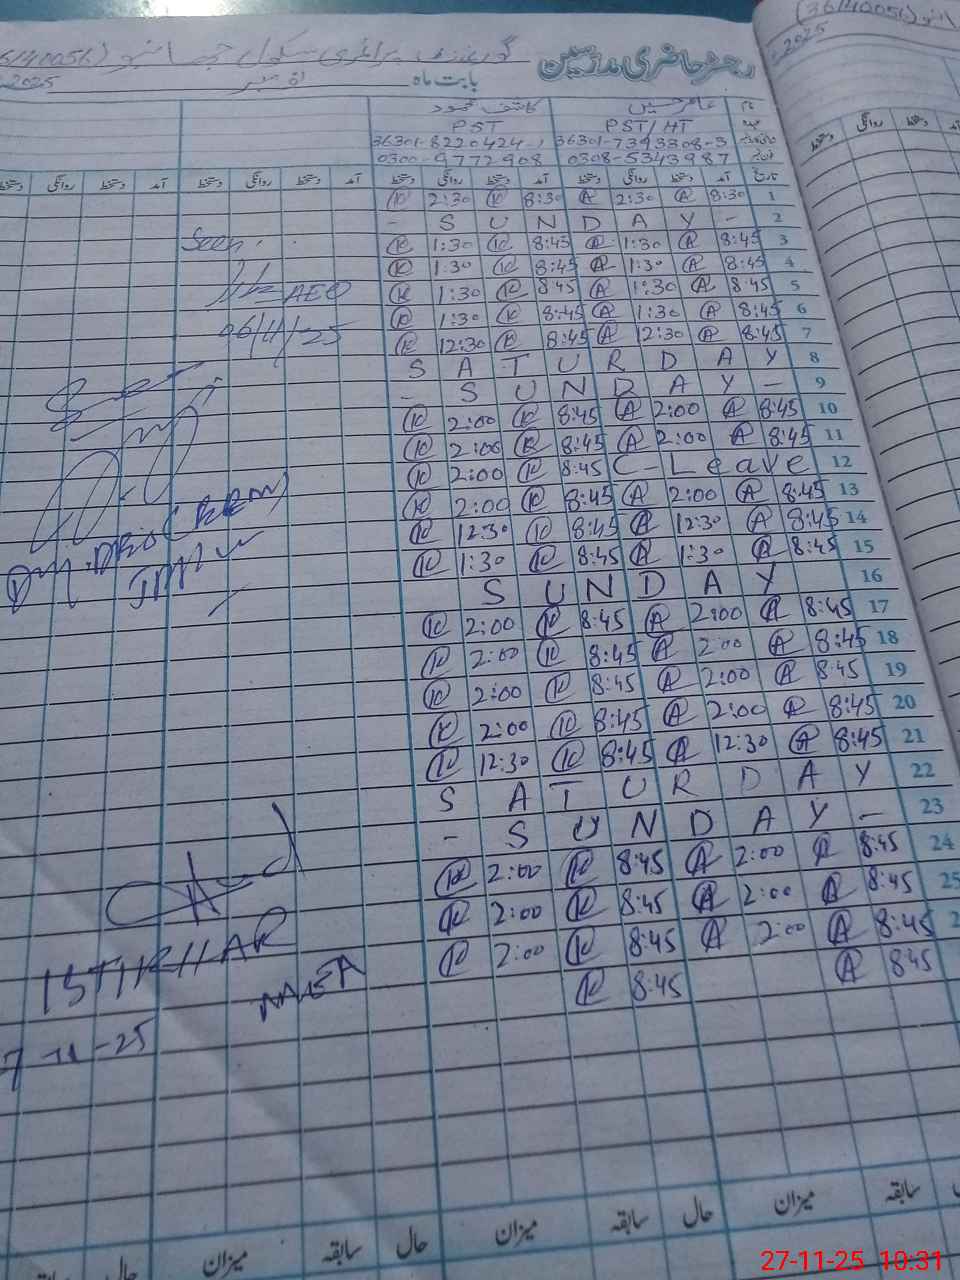 رجسٹر حاضری مدرسین گورنمنٹ پرائمری سکول
بابت ماہ نومبر 2025
نام عامر حسین کاشف محمود
عہدہ PST/HT PST
36301-7393308-3 36301-8220424-1
0308-5343987 0300-9772908
تاریخ آمد دستخط روانگی دستخط آمد دستخط روانگی دستخط آمد دستخط روانگی دستخط آمد دستخط روانگی دستخط
1 8:30 A 2:30 A 8:30 K 2:30 K
2 - S U N D A Y -
3 8:45 A 1:30 A 8:45 K 1:30 K
4 8:45 A 1:30 A 8:45 K 1:30 K
5 8:45 A 1:30 A 8:45 K 1:30 K
6 8:45 A 1:30 A 8:45 K 1:30 K
7 8:45 A 12:30 A 8:45 K 12:30 K
8 S A T U R D A Y
9 - S U N D A Y -
10 8:45 A 2:00 A 8:45 K 2:00 K
11 8:45 A 2:00 A 8:45 K 2:00 K
12 C-Leave 8:45 K 2:00 K
13 8:45 A 2:00 A 8:45 K 2:00 K
14 8:45 A 12:30 A 8:45 K 12:30 K
15 8:45 A 1:30 A 8:45 K 1:30 K
16 S U N D A Y
17 8:45 A 2:00 A 8:45 K 2:00 K
18 8:45 A 2:00 A 8:45 K 2:00 K
19 8:45 A 2:00 A 8:45 K 2:00 K
20 8:45 A 2:00 A 8:45 K 2:00 K
21 8:45 A 12:30 A 8:45 K 12:30 K
22 S A T U R D A Y
23 - S U N D A Y -
24 8:45 A 2:00 A 8:45 K 2:00 K
25 8:45 A 2:00 A 8:45 K 2:00 K
8:45 A 2:00 A 8:45 K 2:00 K
8:45 A 8:45 K
Seen.
AEO
06/11/25
ISTIKHAR
MEA
7-11-25
سابقہ میزان حال سابقہ میزان حال سابقہ میزان حال سابقہ
27-11-25 10:31